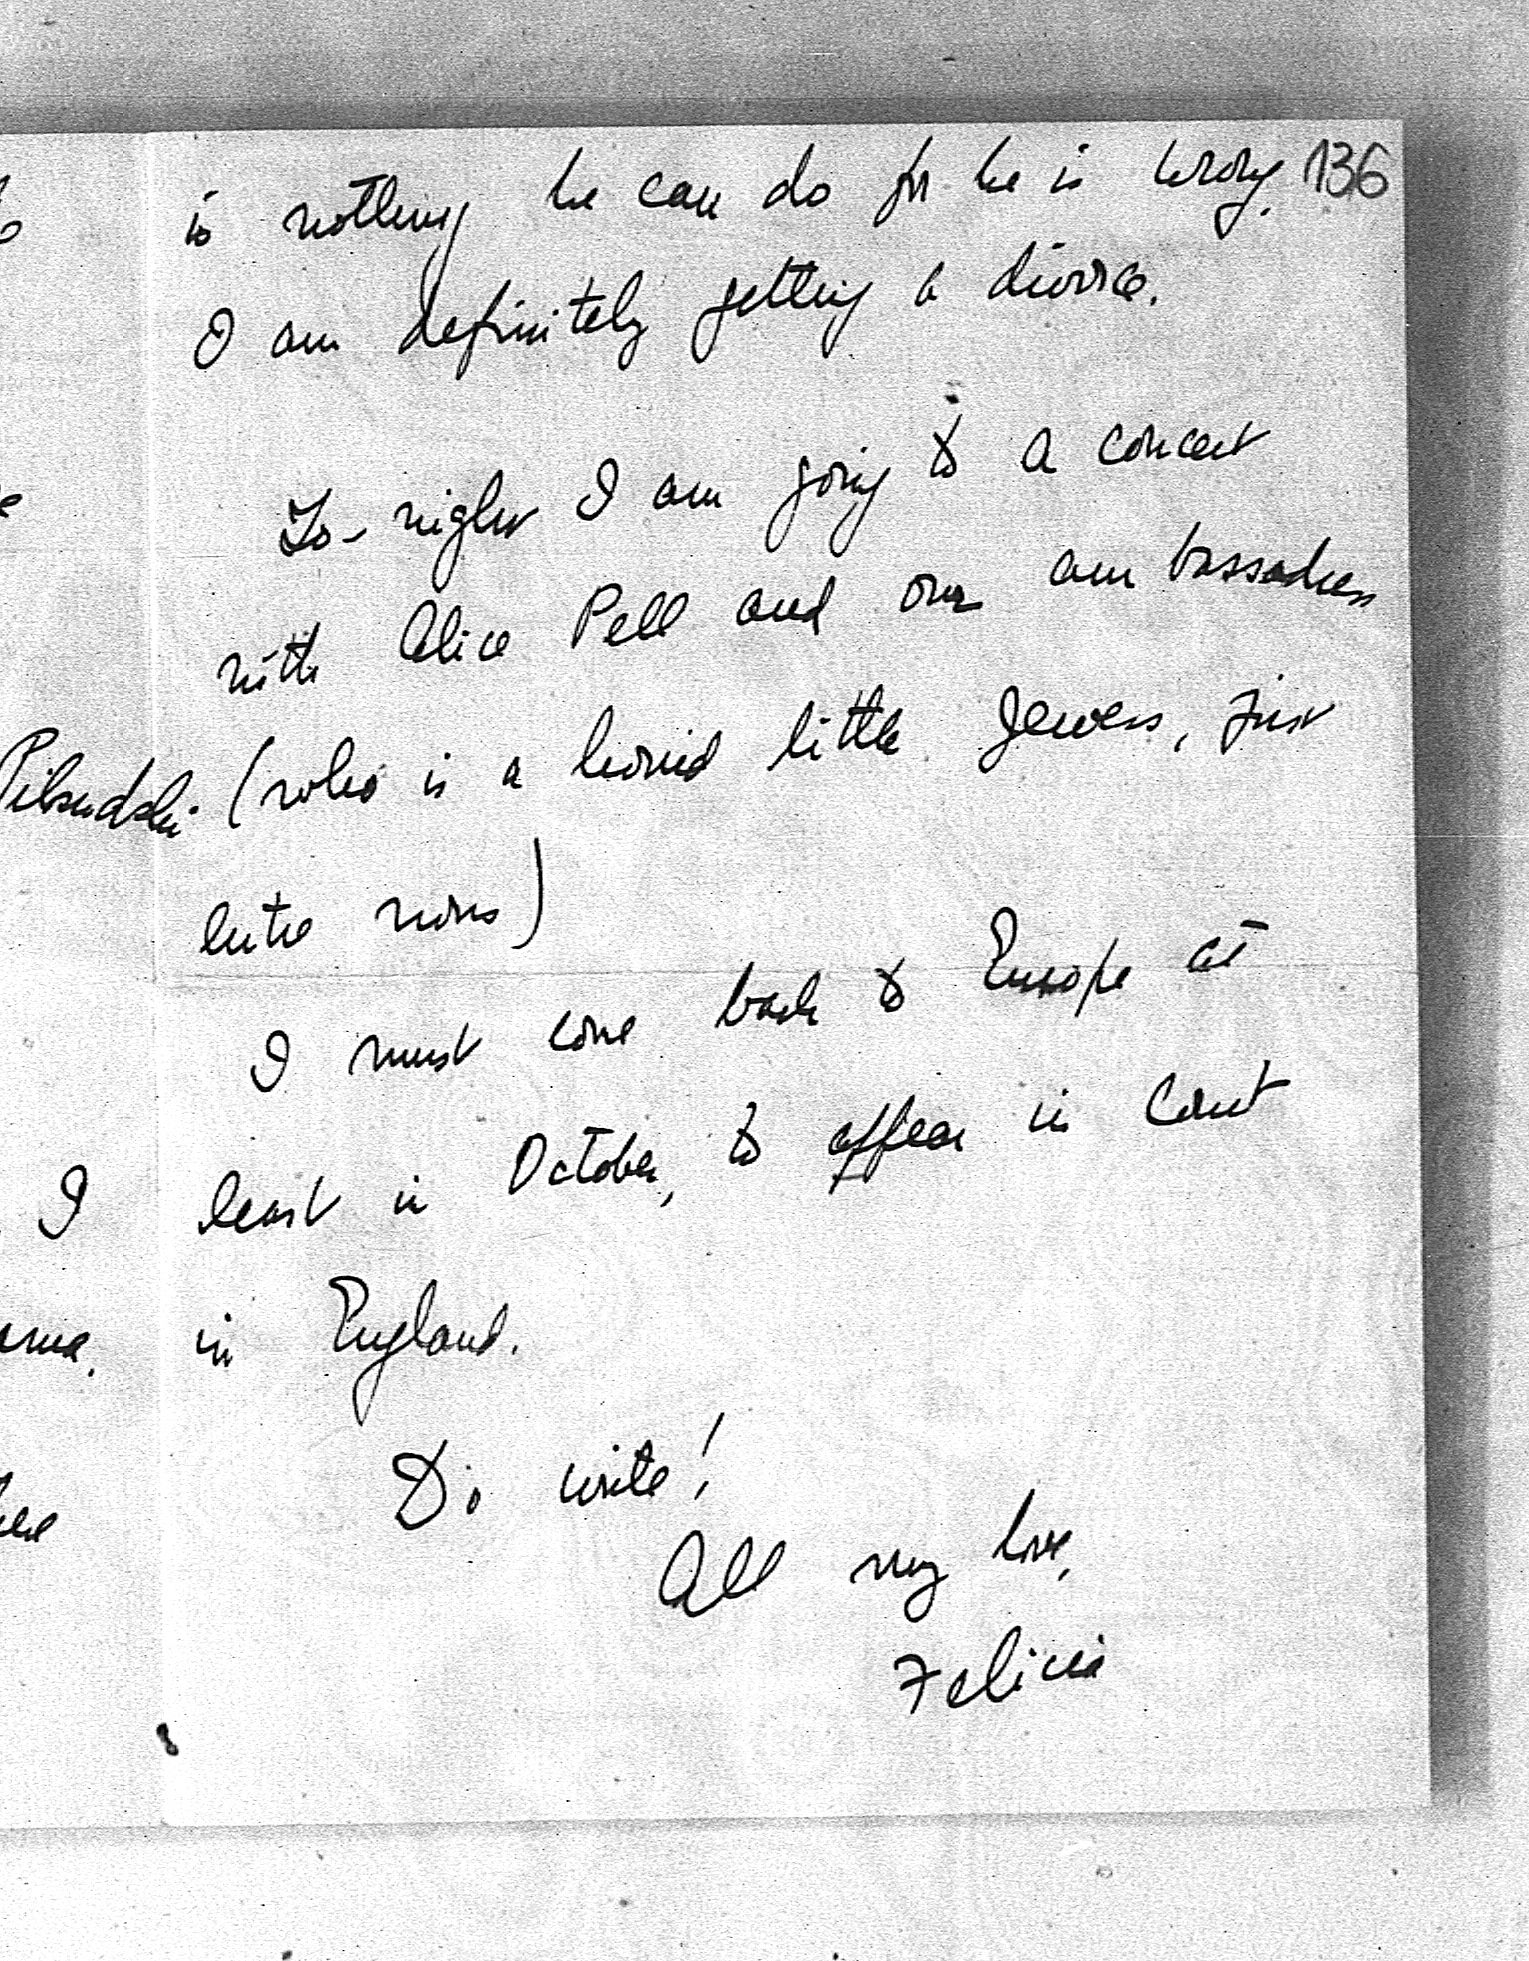 136
is nothing he can do for he is wrong.
I am definitely getting a divorce.
To-night I am going to a concert
with Alice Pell and our ambassadress
Pilsudski (who is a horrid little Jewess, just
entre nous)
I must come back to Europe at
I least in October, to appear in Court
in England.
Do write!
All my love,
Felicia